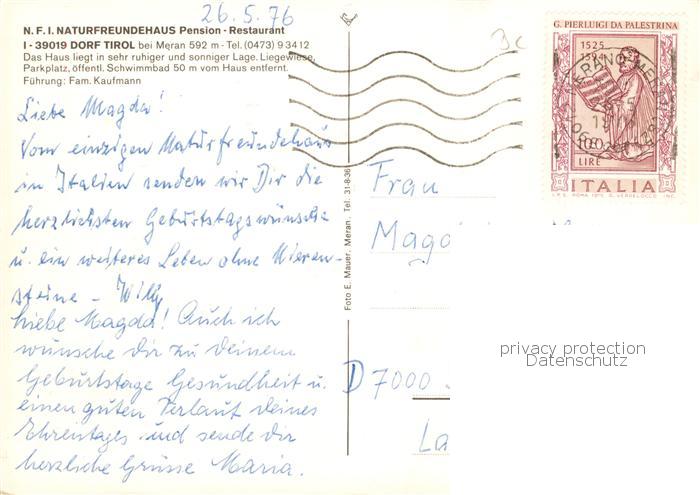 26.5.76
N. F. I. NATURFREUNDEHAUS Pension - Restaurant
I - 39019 DORF TIROL bei Meran 592 m - Tel. (0473) 9 34 12
Das Haus liegt in sehr ruhiger und sonniger Lage. Liegewiese,
Parkplatz, öffentl. Schwimmbad 50 m vom Haus entfernt.
Führung: Fam. Kaufmann
Liebe Magda!
Vom einzigen Naturfreundehaus
in Italien senden wir Dir die
herzlichsten Geburtstagswünsche
u. ein weiteres Leben ohne Nieren-
steine - Willy
Liebe Magda! Auch ich
wünsche dir zu deinem
Geburtstage Gesundheit u.
einen guten Verlauf deines
Ehrentages und sende dir
herzliche Grüsse Maria.
Foto E. Mauer, Meran, Tel. 31-8-36
G. PIERLUIGI DA PALESTRINA
1525
1594
100
LIRE
ITALIA
I.P.S. ROMA 1975
Frau
Magd
D 7000
La
privacy protection
Datenschutz